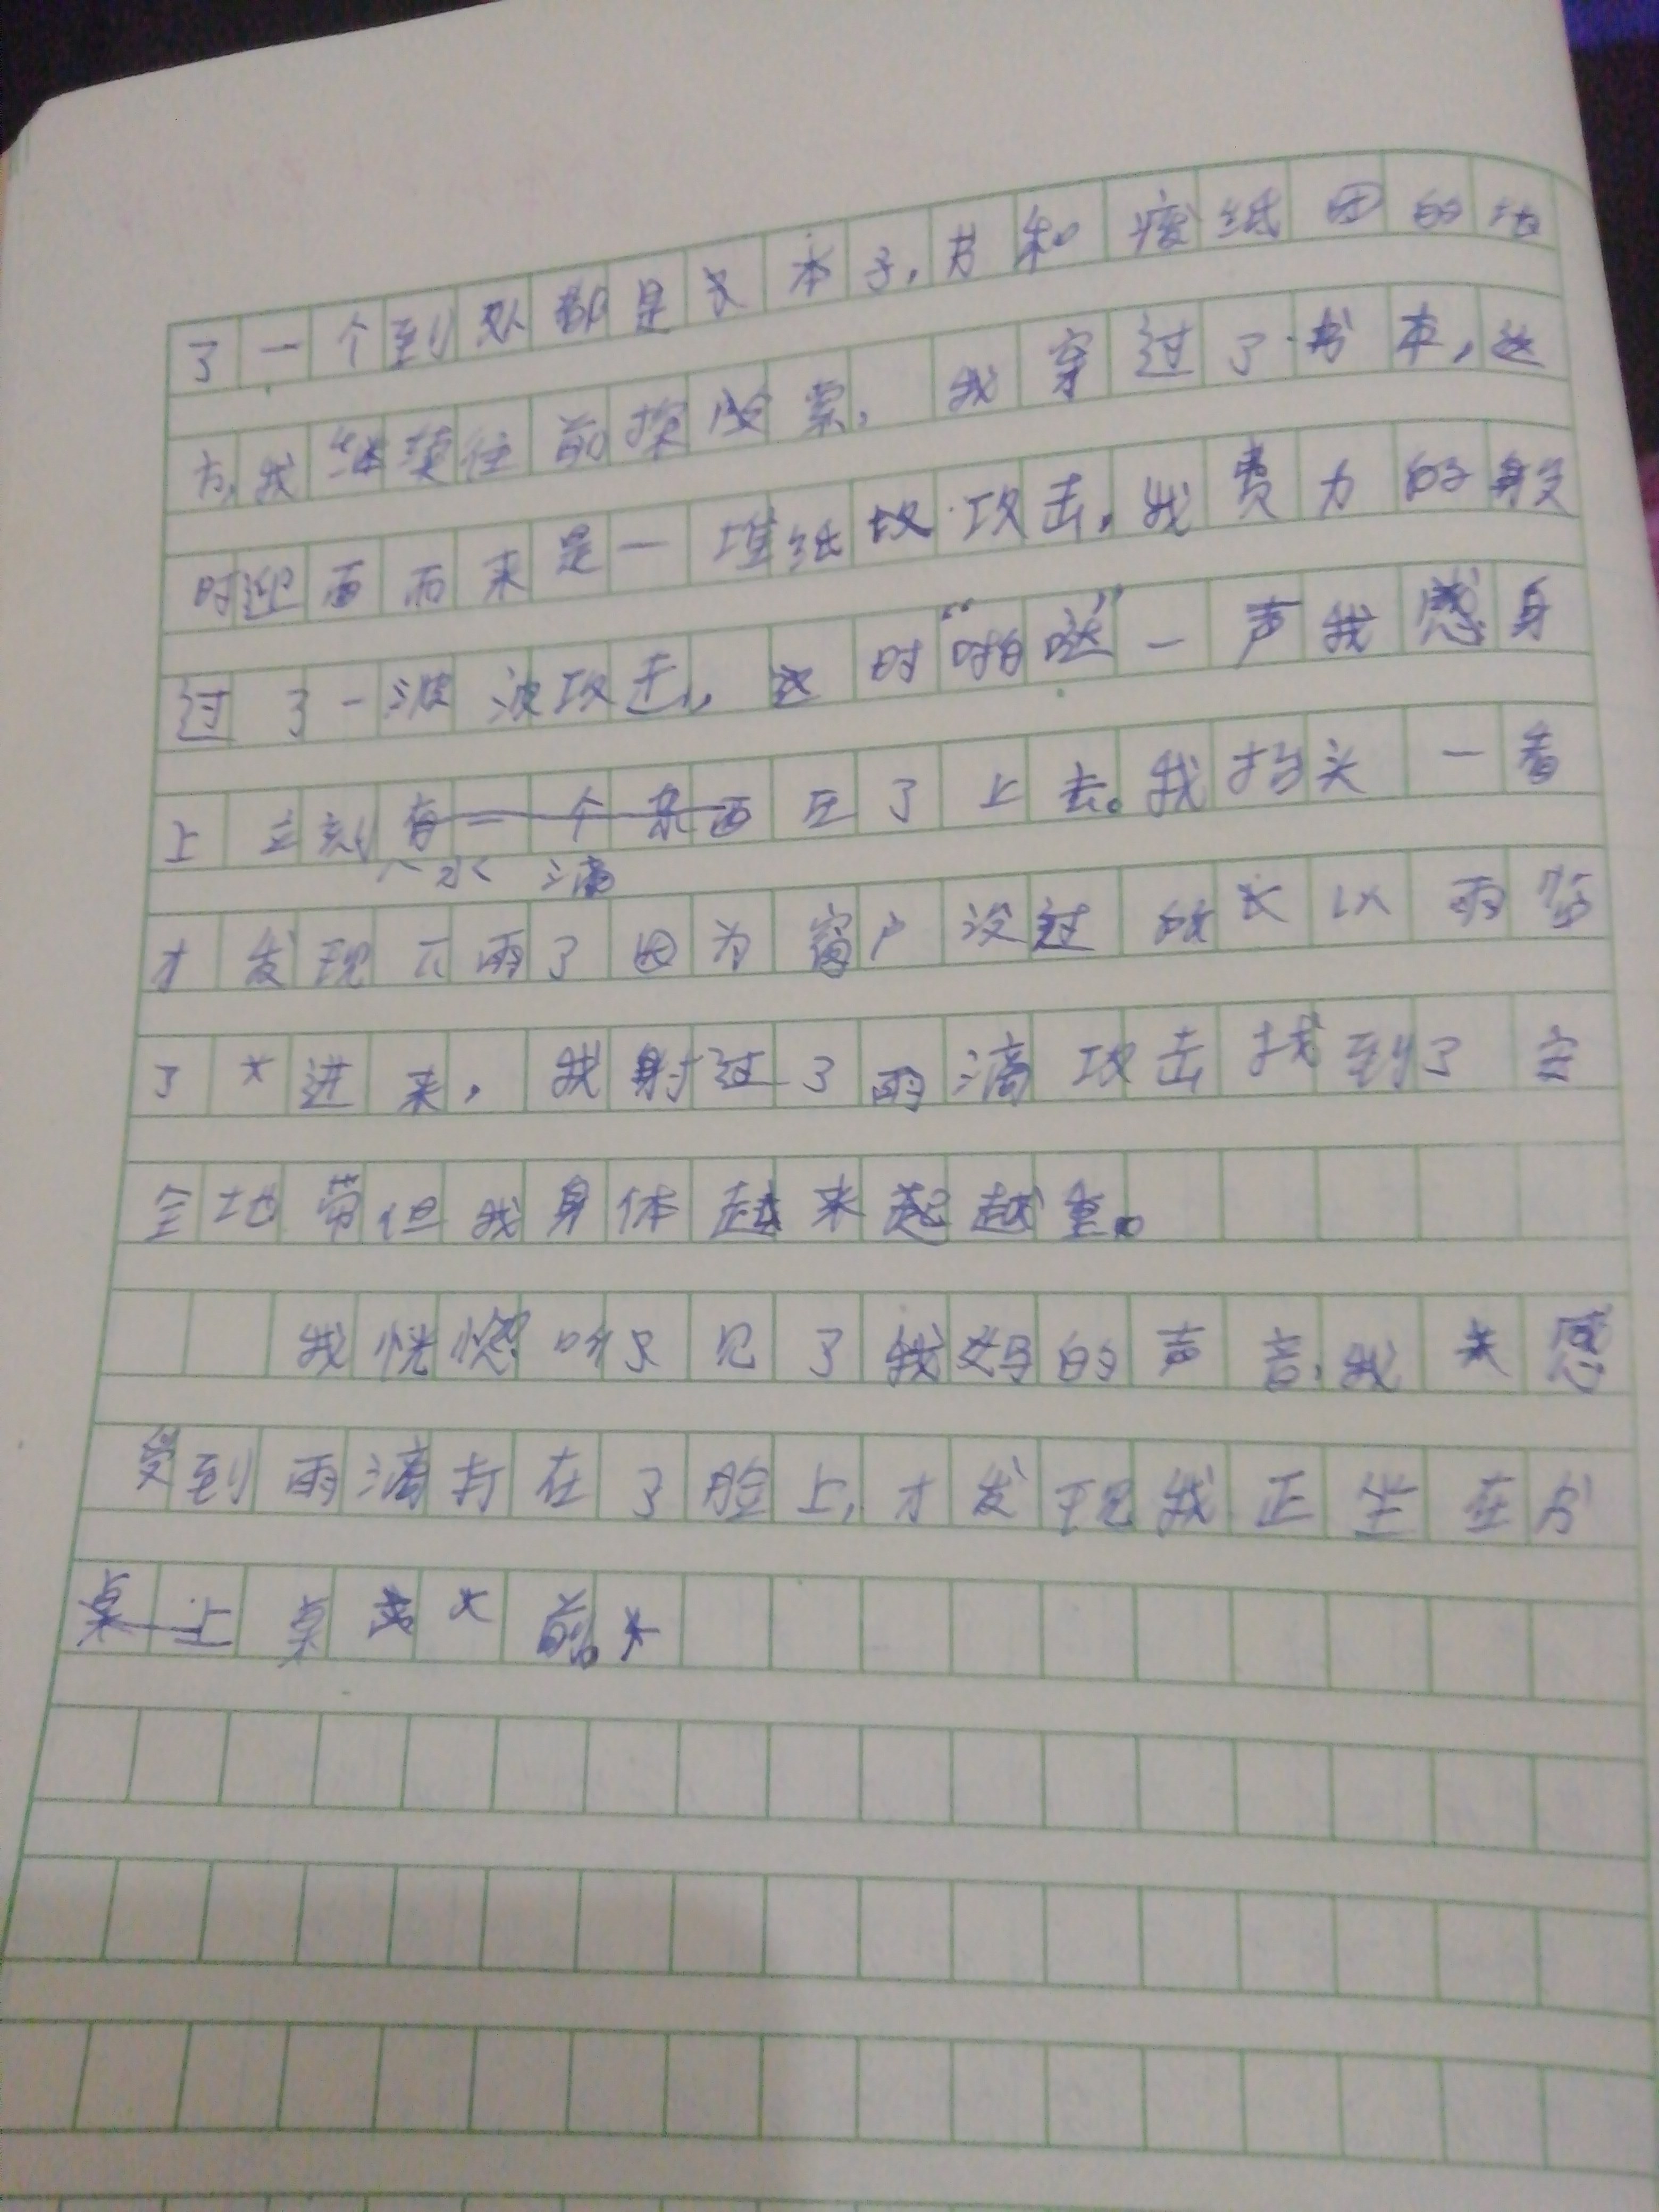 了一个到处都是本子,书和废纸团的地
方,我继续往前探索,我穿过了书本,这
时迎面而来是一堆纸攻击,我费力的躲
过了一波波攻击,这时“啪哒”一声我感身
上立刻有一个东西压了上去。我抬头一看
水滴
才发现下雨了因为窗户没过所以雨落
了进来,我躲过了雨滴攻击找到了安
全地带但我身体越来越重。
我恍惚听见了我妈的声音,我感
受到雨滴打在了脸上,才发现我正坐在书
桌上桌前。